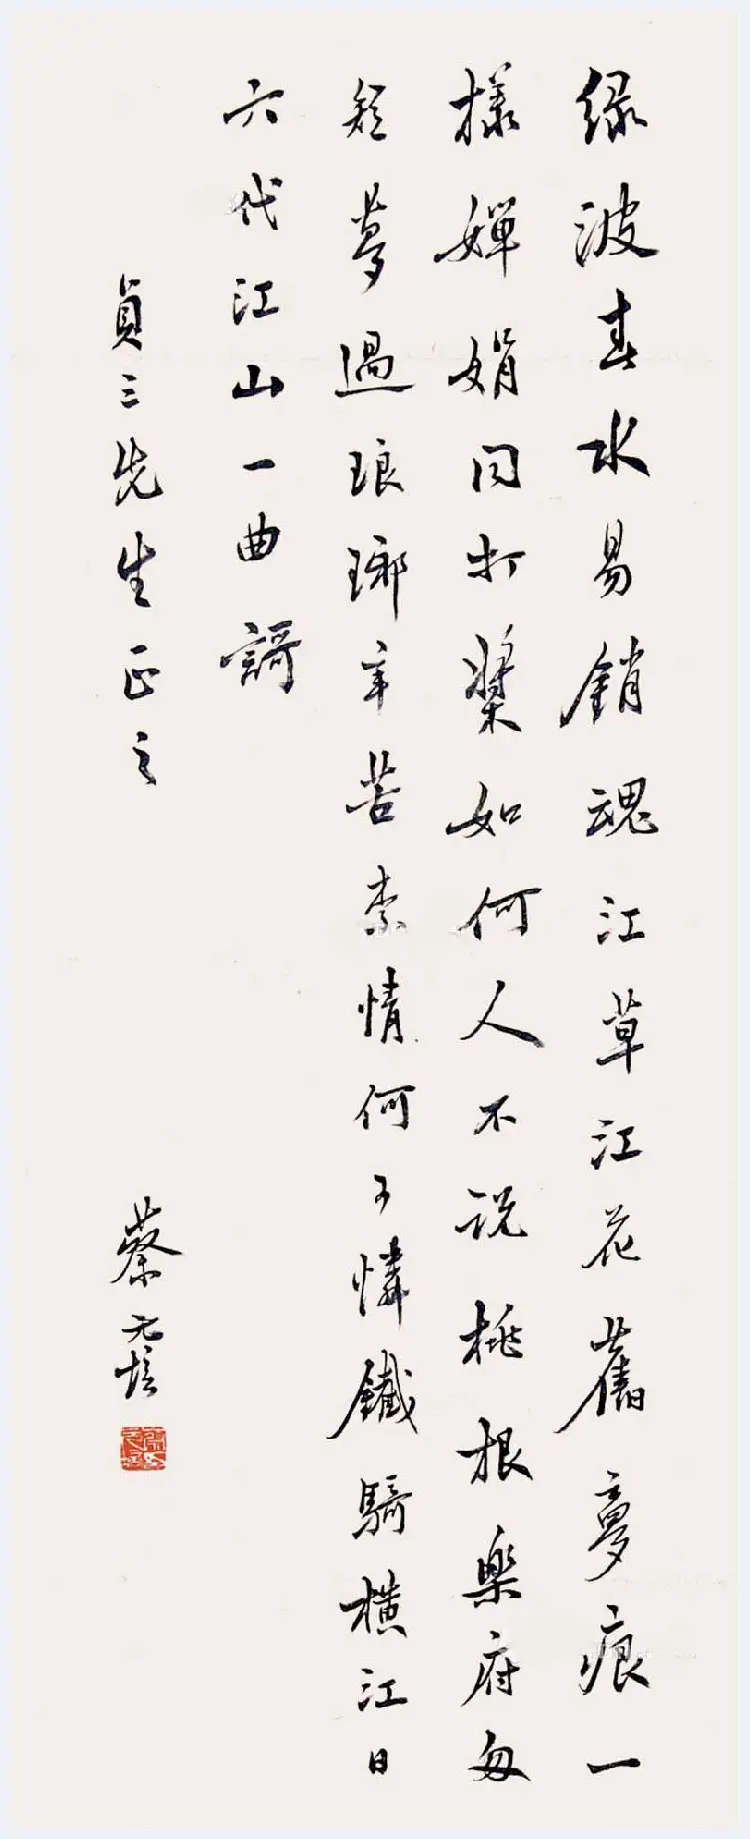 绿波春水易銷魂江草江花舊夢痕一
樣嬋娟同打槳如何人不说桃根樂府每
短夢過琅琊辛苦李情何可憐鐵騎橫江日
六代江山一曲謌
貞三先生正之
蔡元培